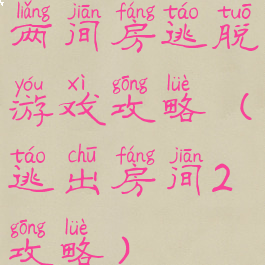 liǎng jiān fáng táo tuō
两间房逃脱
yóu xì gōng lüè
游戏攻略（
táo chū fáng jiān
逃出房间2
gōng lüè
攻略）